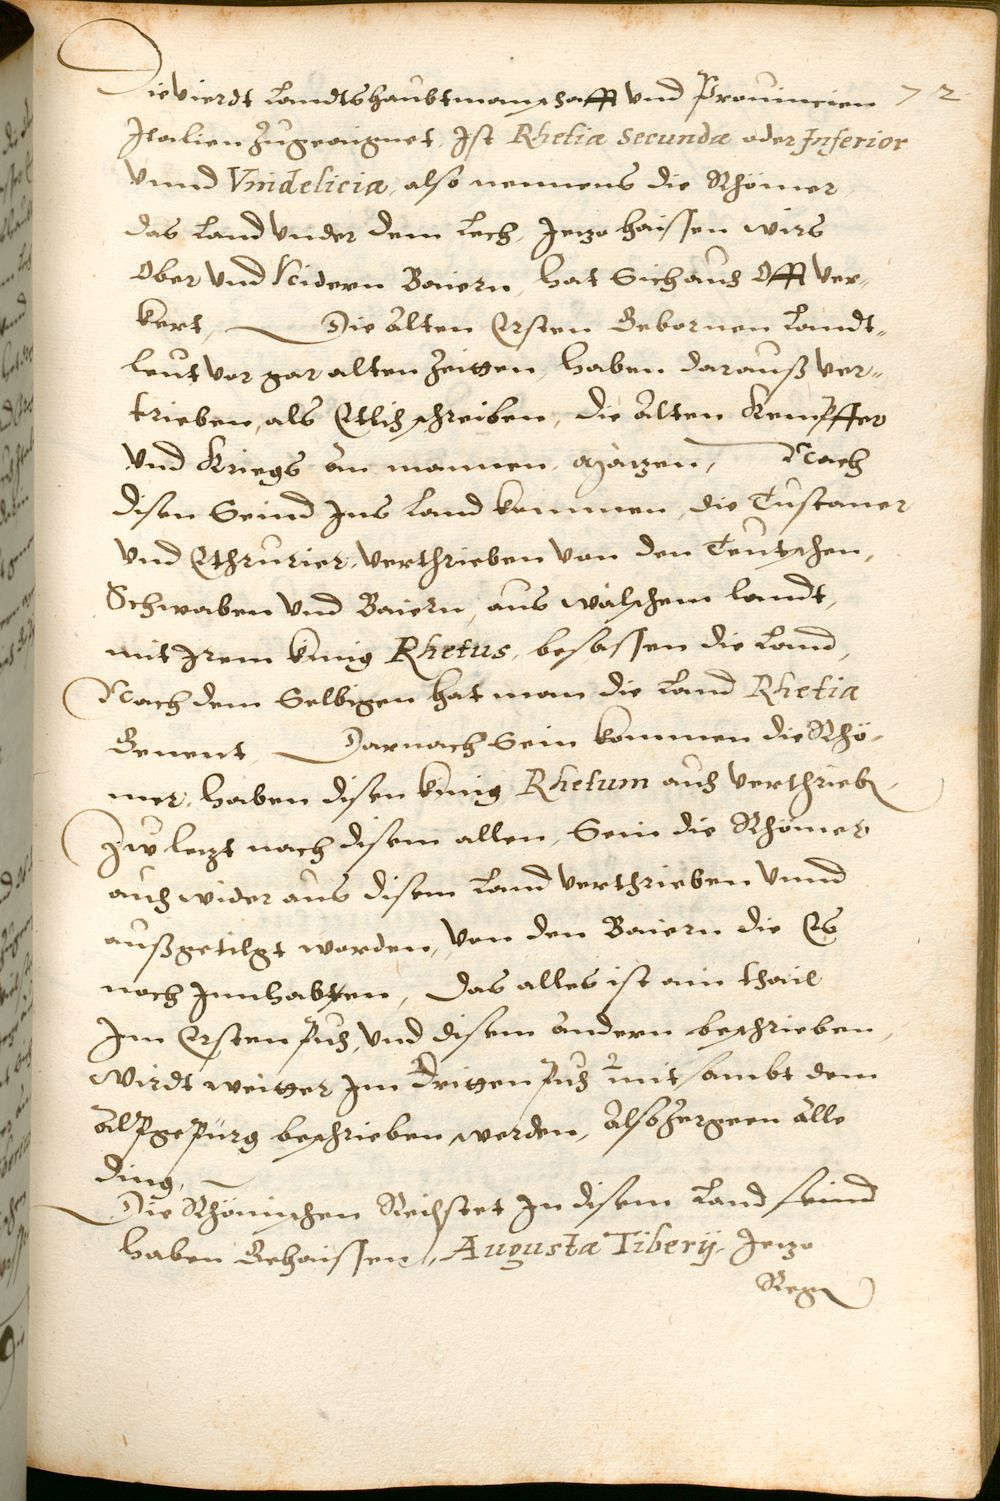 72
Die vierdt Landtshaubtmanschafft vnd Prouincien
Italien zugeaignet, Ist Rhetia secunda oder Inferior
vnnd Vnidelicia, also nennens die Rhömer,
das Land vnder dem Lech, Jetzo haissen wirs
Ober vnd Nidern Baiern, hat Sich auch Offt ver=
kert, Die alten Ersten Gebornen Landt=
leut vor gar alten Zeitten, haben darauß ver=
trieben, als Etlich schreiben, die alten Kempffer
vnd Kriegs an mannen, Nach
disen Seind Ins Land kommen, die Tuscaner
vnd Ethrurier, verthrieben von den Teutschen,
Schwaben vnd Baiern, aus wälschem landt,
mit Irem künig Rhetus, besassen die Land,
Nach dem Selbigen hat man die Land Rhetia
Genent, Darnach Sein kommen die Rhö=
mer, haben disen künig Rhetum auch verthrieb,
Zw letzt nach disem allen, Sein die Rhömer
auch wider aus disem Land verthrieben vnnd
außgetilgt worden, von den Baiern die Es
noch Innhabten, Das alles ist ain thail
Im Ersten puch, vnd disem andern beschrieben,
Wirdt weitter Im Dritten puch mit sambt dem
alpgepürg beschrieben werden, Also zergeen alle
ding,
Die Rhömischen Reichstet In disem Land seind
haben Gehaissen, Augusta Tiberij, Jetzo
Reg